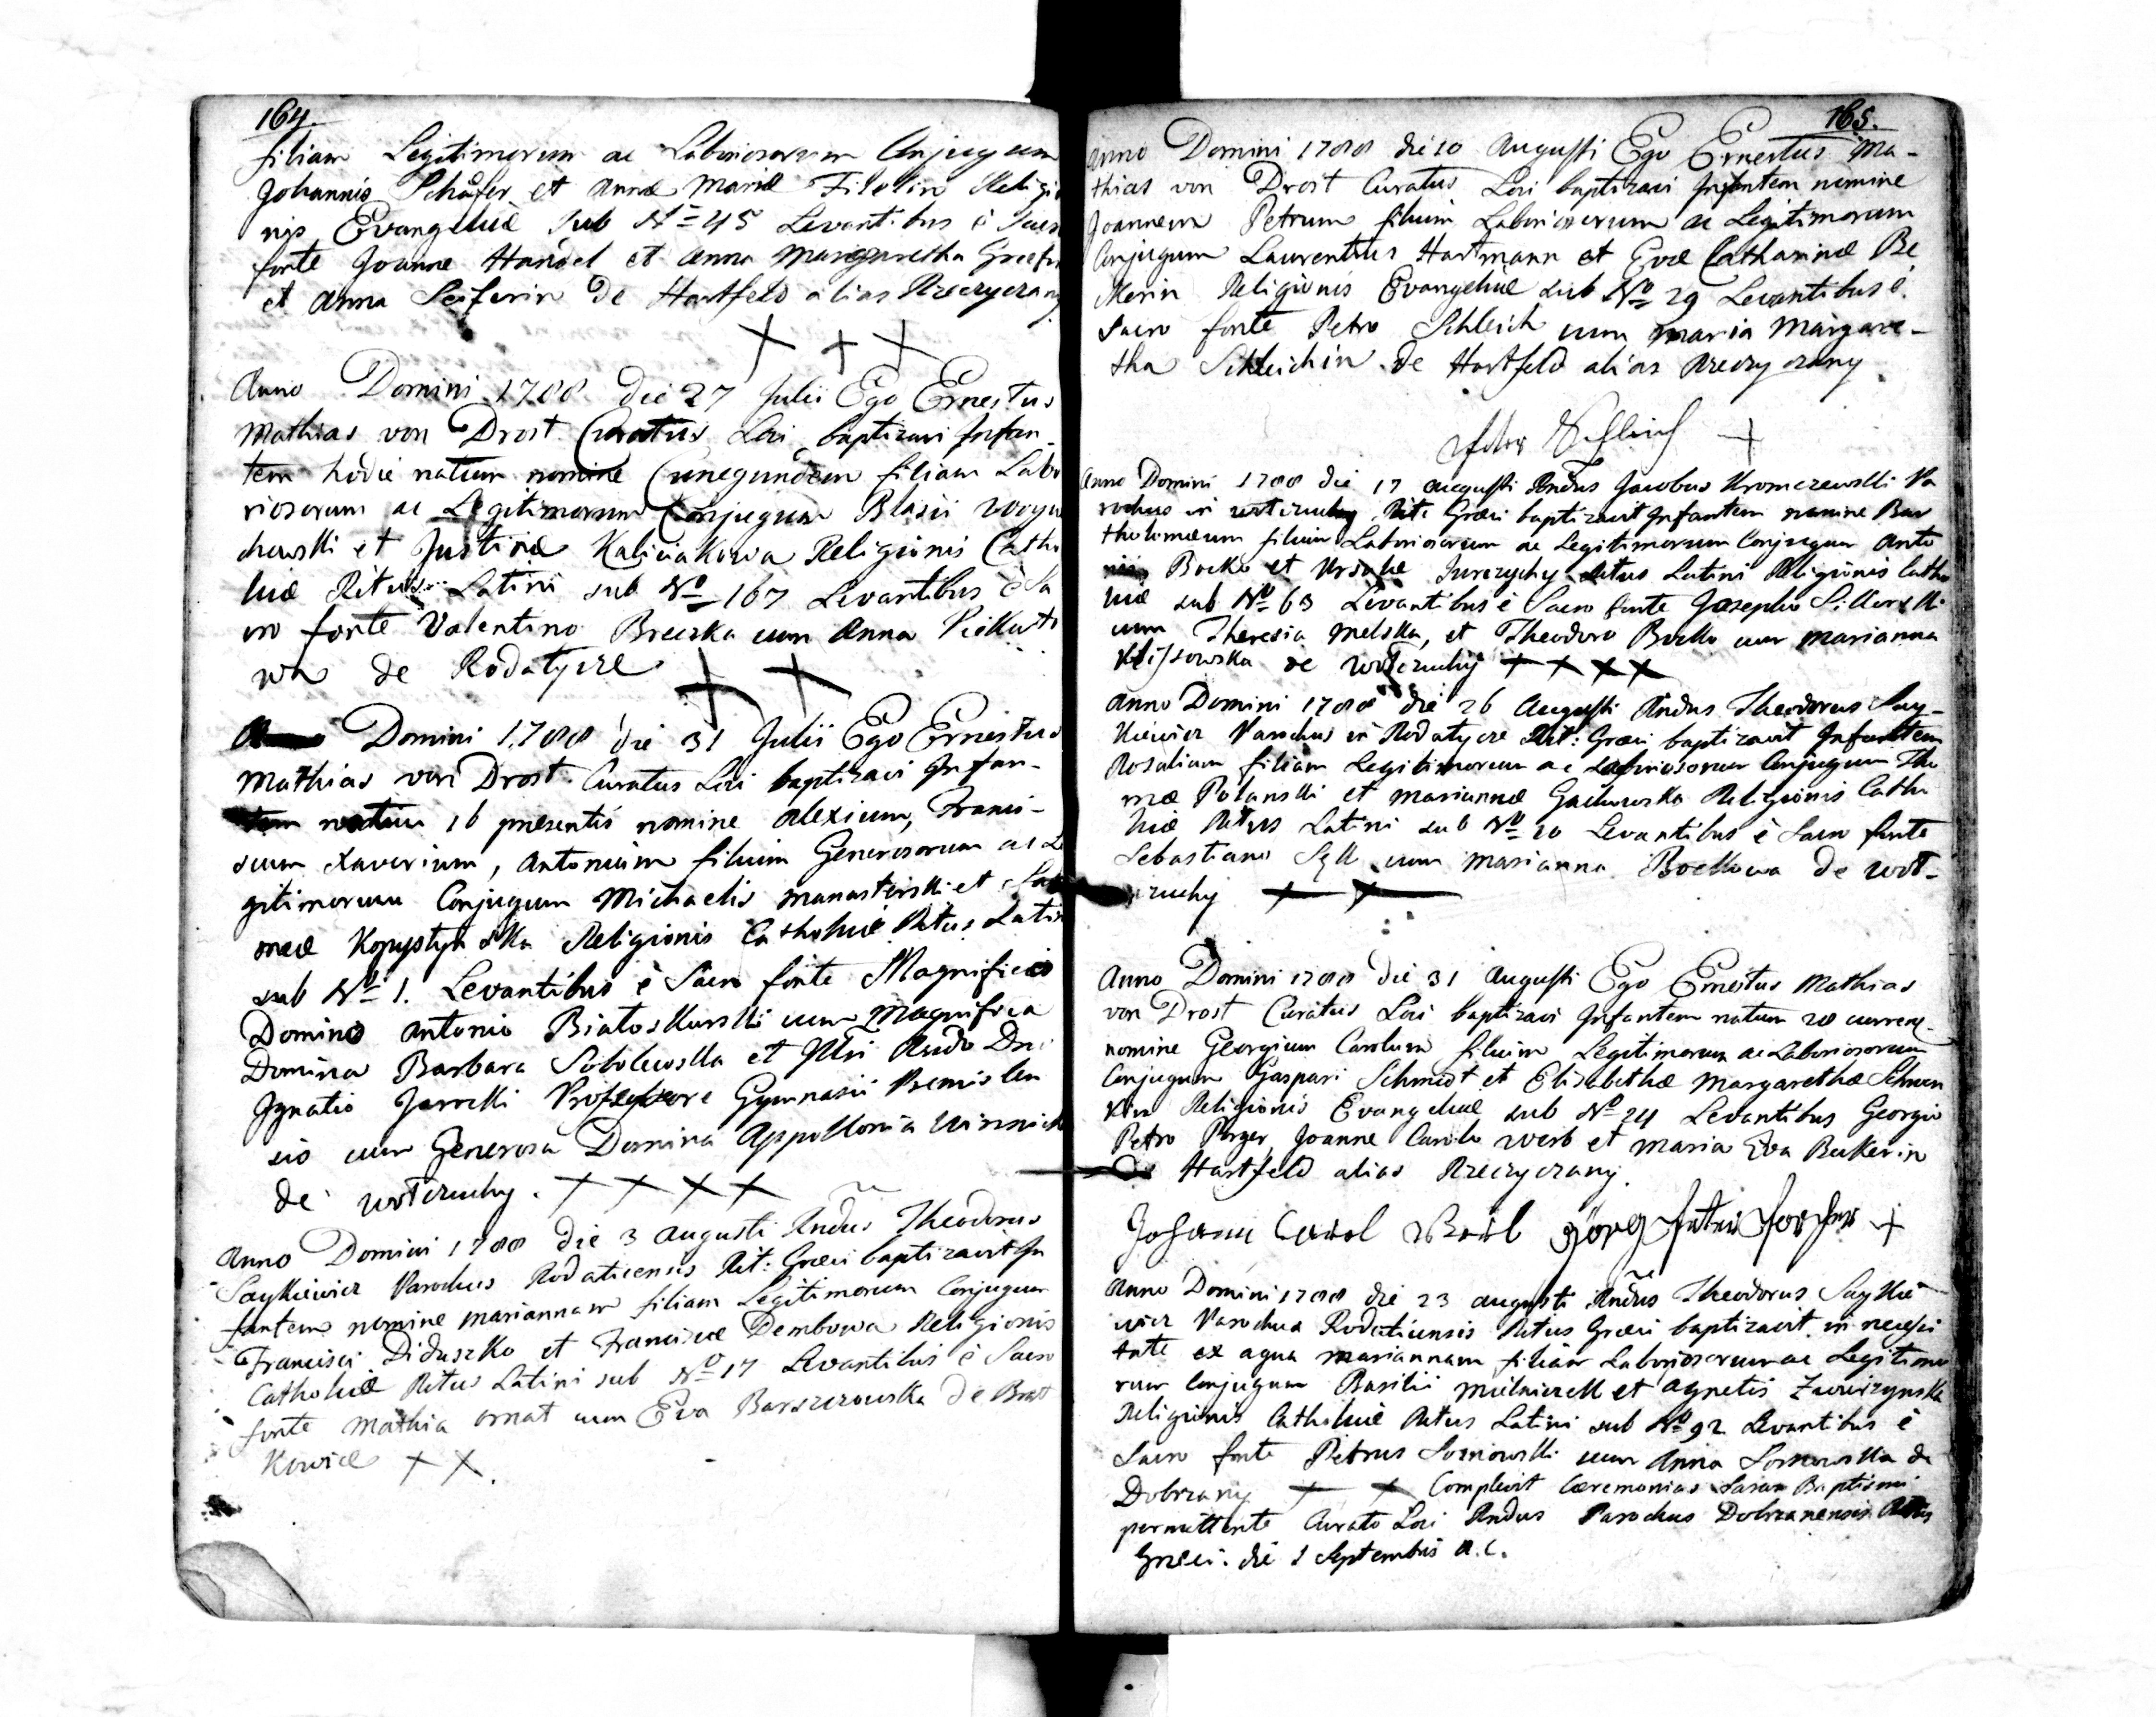 164.
filiam Legitimorum ac Laboriosorum Conjugum
Johannis Schäfer et Annæ Mariæ Filelin Religio
nis Evangelicæ sub No 45 Levantibus è Sacro
fonte Joanne Handel et Anna Margaretha
et Anna Seiferin de Hartfeld alias Rzeczyczany
+ + +
Anno Domini 1788 die 27 Julii Ego Ernestus
Mathias von Drost Curatus Loci baptizavi Infan-
tem hodie natum nomine Cunegundem filiam Labo
riosorum ac Legitimorum Conjugum Blasii Woycie
chowski et Justinæ Kaliciakowa Religionis Catho
licæ Ritus Latini sub No 167 Levantibus è Sa
cro fonte Valentino Breczka cum Anna
wa de Rodatycze
+ +
Domini 1788 die 31 Julii Ego Ernestus
Mathias von Drost Curatus Loci baptizavi Infan-
tem natum 16 præsentis nomine Alexium, Francis-
cum Xaverium, Antonium filium Generosorum ac Le
gitimorum Conjugum Michaelis Manasterski et Salo
meæ Kopystyńska Religionis Catholicæ Ritus Latini
sub No 1. Levantibus è Sacro fonte Magnifico
Domino Antonio Białoskurski cum Magnifica
Domina Barbara Sobolewska et Illri Rndo Dno
Ignatio Jarecki Professore Gymnasii Premislen
sis cum Generosa Domina Appollonia
de Wotczuchy. + + + +
Anno Domini 1788 die 3 Augusti Rndus Theodorus
Saykiewicz Parochus Rodaticensis Rit: Græci baptizavit In
fantem nomine Mariannam filiam Legitimorum Conjugum
Francisci Diduszko et Franciscæ Dembowa Religionis
Catholicæ Ritus Latini sub No 17 Levantibus è Sacro
fonte Mathia Ornat cum Eva Barszczowska de Brat
kowice + +.
165.
Anno Domini 1788 die 10 Augusti Ego Ernestus Ma-
thias von Drost Curatus Loci baptizavi Infantem nomine
Joannem Petrum filium Laboriosorum ac Legitimorum
Conjugum Laurentius Hartmann et Evæ Catharinæ Be
kerin Religionis Evangelicæ sub No 29 Levantibus è
Sacro fonte Petro Schleich cum Maria Margare-
tha Schleichin de Hartfeld alias Rzeczyczany
Peter Schleich +
Anno Domini 1788 die 17 Augusti Rndus Jacobus Kromczewski Pa
rochus in Wotczuchy Rit: Græci baptizavit Infantem nomine Bar
tholomæum filium Laboriosorum ac Legitimorum Conjugum Anto
nii Bocko et Ursulæ Jurczychy Ritus Latini Religionis Catho
licæ sub No 63 Levantibus è Sacro fonte Josepho Sikorski
cum Theresia Melska, et Theodoro Bocko cum Marianna
Klissowska de Wotczuchy + + + +
Anno Domini 1788 die 26 Augusti Rndus Theodorus Say-
kiewicz Parochus in Rodatycze Rit: Græci baptizavit Infantem
Rosaliam filiam Legitimorum ac Laboriosorum Conjugum Tho
mæ Polanski et Mariannæ Gachowska Religionis Catho
licæ Ritus Latini sub No 20 Levantibus è Sacro fonte
Sebastiano Szk cum Marianna Bockowa de Wot-
czuchy + +
Anno Domini 1788 die 31 Augusti Ego Ernestus Mathias
von Drost Curatus Loci baptizavi Infantem natum 28 curren-
nomine Georgium Carolum filium Legitimorum ac Laboriosorum
Conjugum Gaspari Schmidt et Elisabethæ Margarethæ
kin Religionis Evangelicæ sub No 24 Levantibus Georgio
Petro Porger, Joanne Carolo Werb et Maria Eva Bekerin
De Hartfeld alias Rzeczyczany.
Johann Carol Görg Peter +
Anno Domini 1788 die 23 Augusti Rndus Theodorus Saykie
wicz Parochus Rodaticensis Ritus Græci baptizavit in necessi
tate ex aqua Mariannam filiam Laboriosorum ac Legitimo
rum Conjugum Basilii Mielniczek et Agnetis Zwierzynska
Religionis Catholicæ Ritus Latini sub No 92 Levantibus è
Sacro fonte Petrus Sosnowski cum Anna Sosnowska de
Dobrzany + + Complevit Cæremonias Sacras Baptismi
permittente Curato Loci Rndus Parochus Dobrzanensis Ritus
Græci. die 1 Septembris a.c.